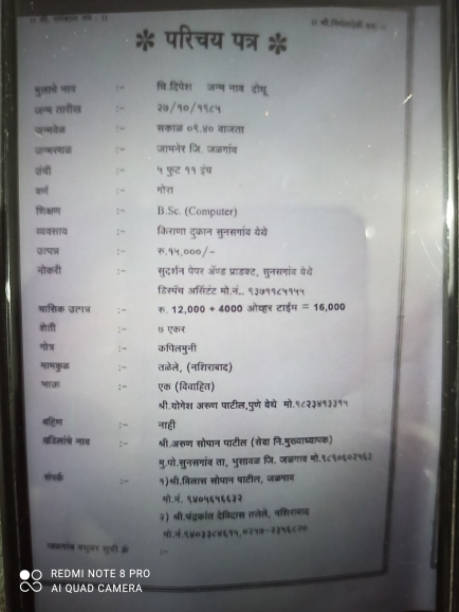 ॥ श्री गणेशाय नमः ॥ ॥ श्री.निर्मलादेवी नमः ॥
✻ परिचय पत्र ✻
मुलाचे नाव :- चि.दिपेश जन्म नाव दोषू
जन्म तारीख :- २७/१०/१९८५
जन्मवेळ :- सकाळ ०९.४० वाजता
जन्मस्थळ :- जामनेर जि. जळगांव
उंची :- ५ फुट ११ इंच
वर्ण :- गोरा
शिक्षण :- B.Sc. (Computer)
व्यवसाय :- किराणा दुकान सुनसगांव येथे
उत्पन्न :- रु.१५,०००/-
नोकरी :- सुदर्शन पेपर ॲण्ड प्राडक्ट, सुनसगांव येथे
डिस्पॅच असिटंट मो.नं.. ९३७११८५१५५
मासिक उत्पन्न :- रु. 12,000 + 4000 ओव्हर टाईम = 16,000
शेती :- ७ एकर
गोत्र :- कपिलमुनी
मामकुळ :- तळेले, (नशिराबाद)
भाऊ :- एक (विवाहित)
श्री.योगेश अरुण पाटील,पुणे येथे मो.९८२३४१३३१५
बहिण :- नाही
वडिलांचे नाव :- श्री.अरुण सोपान पाटील (सेवा नि.मुख्याध्यापक)
मु.पो.सुनसगांव ता, भुसावळ जि. जळगाव
संपर्क :- १)श्री.विलास सोपान पाटील, जळगाव
मो.नं. ९४०५६५६६३२
२) श्री.चंद्रकांत देविदास तळेले, नशिराबाद
मो.नं.
जळगांव वधुवर सूची क्र :-
REDMI NOTE 8 PRO
AI QUAD CAMERA